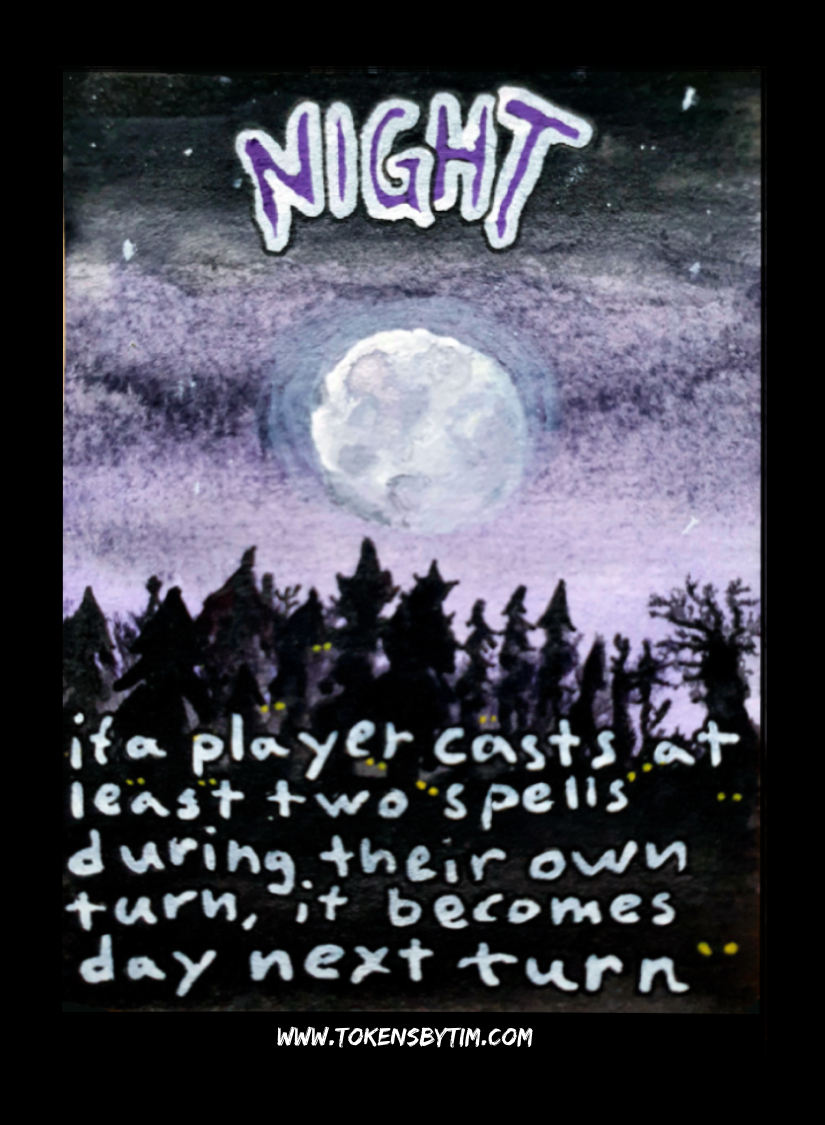 NIGHT
if a player casts at
least two spells
during their own
turn, it becomes
day next turn
WWW.TOKENSBYTIM.COM